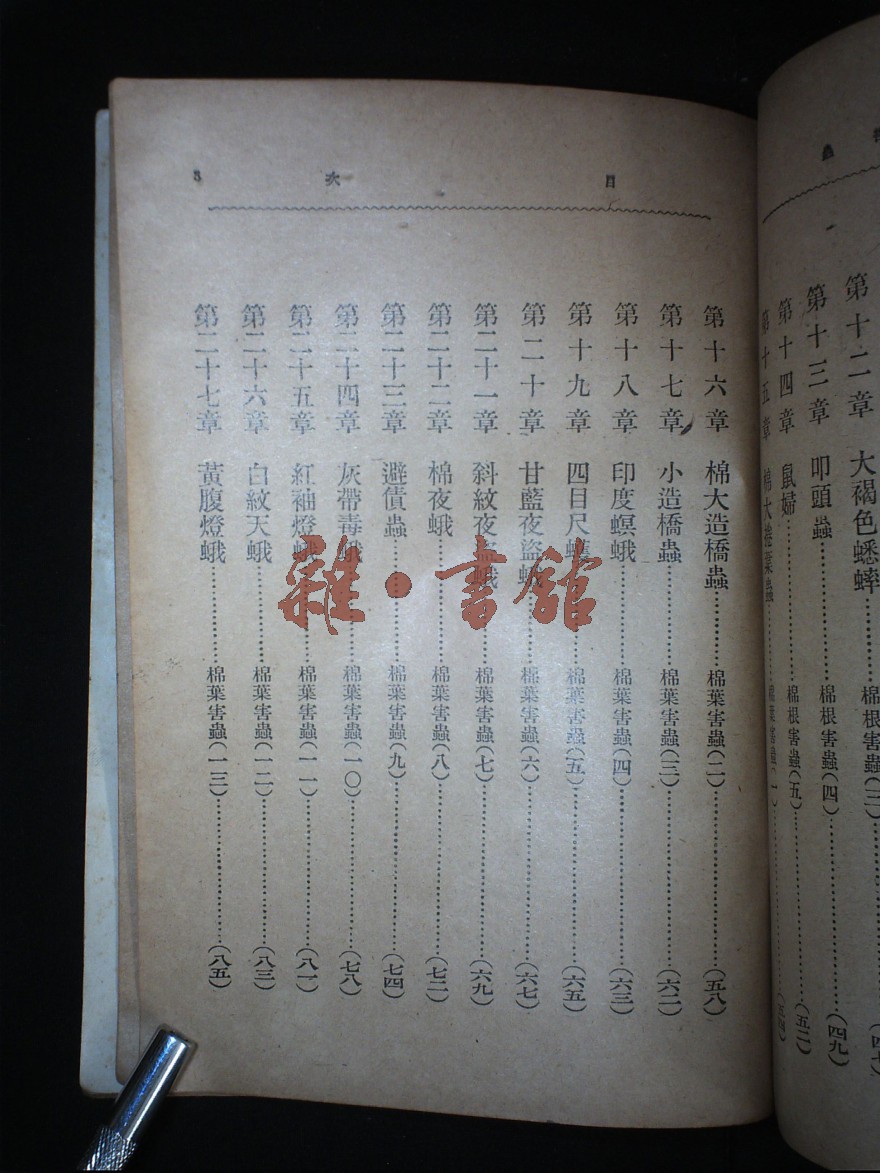 第十二章　大褐色蟋蟀………棉根害蟲(三)
第十三章　叩頭蟲………棉根害蟲(四)………(四九)
第十四章　鼠婦………棉根害蟲(五)………(五二)
第十五章　棉大捲葉蟲………棉葉害蟲(一)………
目　次　3
第十六章　棉大造橋蟲………棉葉害蟲(二)………(五八)
第十七章　小造橋蟲………棉葉害蟲(三)………(六二)
第十八章　印度螟蛾………棉葉害蟲(四)………(六三)
第十九章　四目尺蠖………棉葉害蟲(五)………(六五)
第二十章　甘藍夜盜蛾………棉葉害蟲(六)………(六七)
第二十一章　斜紋夜盜蛾………棉葉害蟲(七)………(六九)
第二十二章　棉夜蛾………棉葉害蟲(八)………(七二)
第二十三章　避債蟲………棉葉害蟲(九)………(七四)
第二十四章　灰帶毒蛾………棉葉害蟲(一〇)………(七八)
第二十五章　紅袖燈蛾………棉葉害蟲(一一)………(八一)
第二十六章　白紋天蛾………棉葉害蟲(一二)………(八三)
第二十七章　黃腹燈蛾………棉葉害蟲(一三)………(八五)
雜·書館